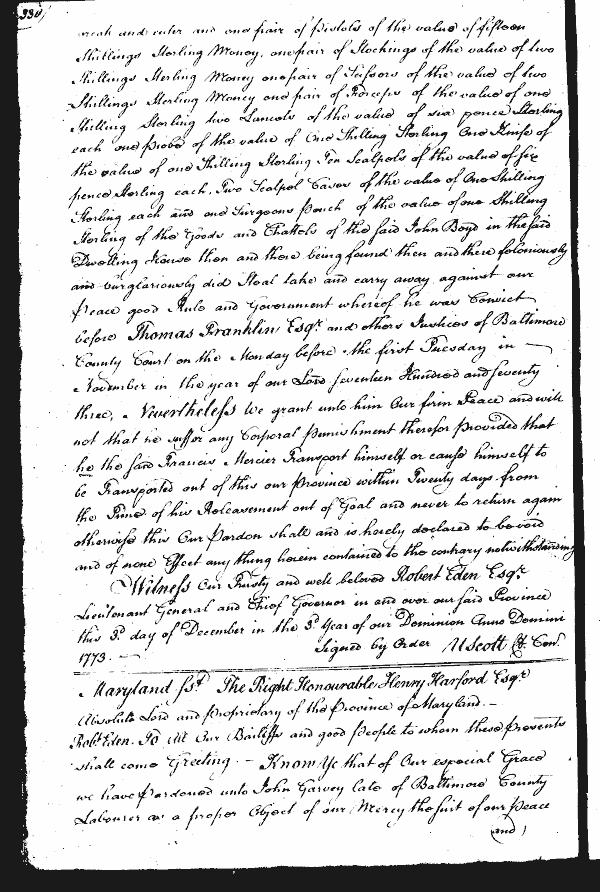 330
break and enter and one pair of Pistols of the value of fifteen
Shillings Sterling Money, one pair of Stockings of the value of two
Shillings Sterling Money one pair of Scissors of the value of two
Shillings Sterling Money one pair of Forceps of the value of one
Shilling Sterling two Lancets of the value of six pence Sterling
each one Probe of the value of One Shilling Sterling One Knife of
the value of one Shilling Sterling Ten Scalpels of the value of six
pence Sterling each, Two Scalpel Cases of the value of One Shilling
Sterling each and one Surgeons Pouch of the value of one Shilling
Sterling of the Goods and Chattels of the said John Boyd in the said
Dwelling House then and there being found then and there feloniously
and burglariously did Steal take and carry away against our
Peace good Rule and Government whereof he was Convict
before Thomas Franklin Esqr. and others Justices of Baltimore
County Court on the Monday before the first Tuesday in
November in the year of our Lord Seventeen Hundred and seventy
three, Nevertheless We grant unto him Our firm Peace and will
not that he suffer any Corporal Punishment therefor Provided that
he the said Francis Mercier Transport himself or cause himself to
be Transported out of this our Province within Twenty days from
the Time of his Releasement out of Goal and never to return again
otherwise this Our Pardon shall and is hereby declared to be void
and of none Effect any thing herein contained to the contrary notwithstanding
Witness Our Trusty and well beloved Robert Eden Esqr.
Lieutenant General and Chief Governor in and over our said Province
this 3d. day of December in the 3d. Year of our Dominion Anno Domini
1773. Signed by Order U Scott Con.
Maryland Sst. The Right Honourable Henry Harford Esqr.
Absolute Lord and Proprietary of the Province of Maryland.
Robt. Eden. To All Our Bailiffs and good People to whom these Presents
shall come Greeting - Know Ye that of Our especial Grace
we have Pardoned unto John Garvey late of Baltimore County
Labourer as a proper Object of our Mercy the suit of our Peace
and